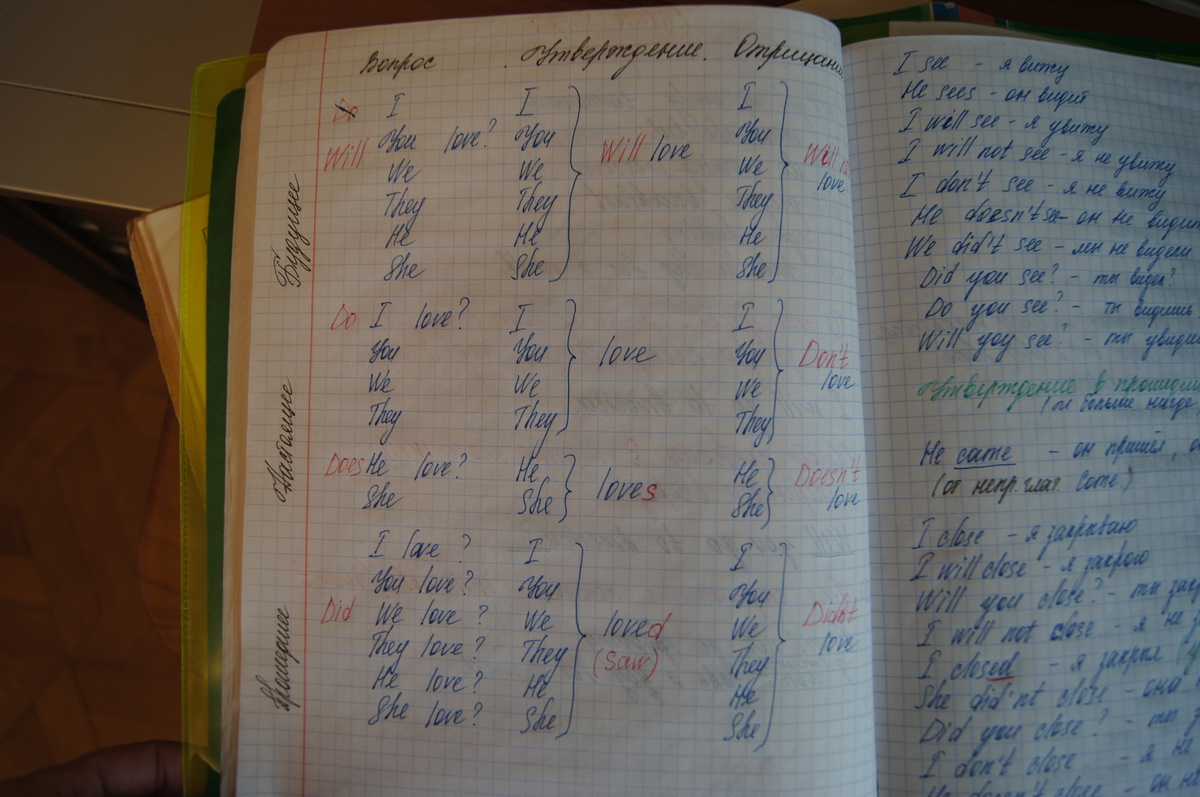 Вопрос . Утверждение. Отрицание
Будущее
Do I I I
Will You love? You Will love You Will not
We We We love
They They They
He He He
She She She
Настоящее
Do I love? I I
You You love You Don't
We We We love
They They They
Does He love? He loves He Doesn't
She She She love
Прошедшее
I love? I I
You love? You You
Did We love? We loved We Didn't
They love? They (saw) They love
He love? He He
She love? She She
I see - я вижу
He sees - он видит
I will see - я увижу
I will not see - я не увижу
I don't see - я не вижу
He doesn't see - он не видит
We did't see - мы не видели
Did you see? - ты видел?
Do you see? - ты видишь
Will yoy see? - ты увидишь
Утверждение в прошедш
больше нигде
He came - он пришёл,
(от непр. глаг. Come.)
I close - я закрываю
I will close - я закрою
Will you close? - ты закр
I will not close - я не з
I closed - я закрыл
She did'nt close - она
Did you close? - ты з
I don't close - я не
He doesn't close - он не